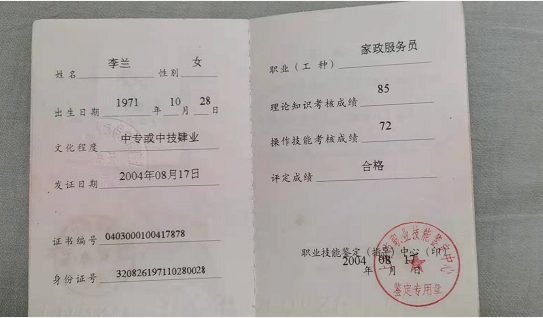 姓名 李兰 性别 女
出生日期 1971 年 10 月 28 日
文化程度 中专或中技肄业
发证日期 2004年08月17日
证书编号 0403000100417878
身份证号 320826197110280028
职业(工 种) 家政服务员
理论知识考核成绩 85
操作技能考核成绩 72
评定成绩 合格
职业技能鉴定(指导)中心(印)
2004 年 08 月 17 日
职业技能鉴定中心
鉴定专用章